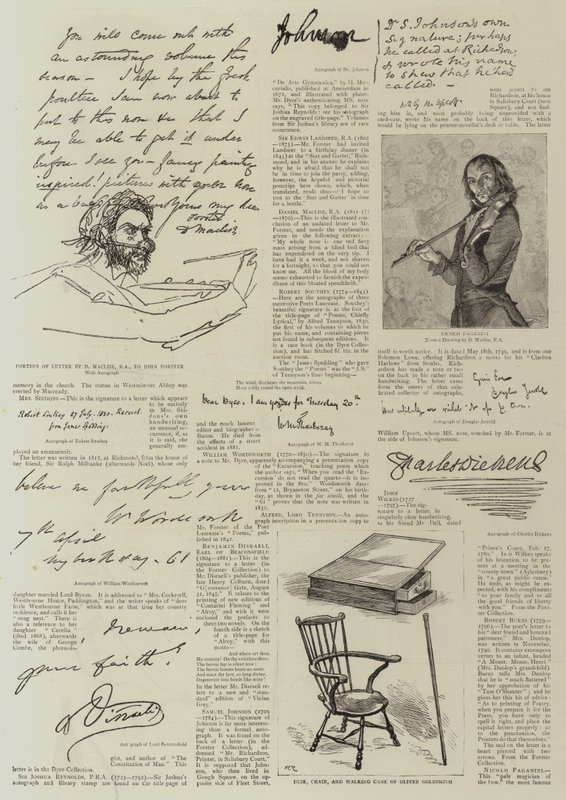 You will come out with
an astounding volume this
season — I hope by the fresh
poultice I am now about to
put to this nose
may be able to get it under
before I see you — fancy painting
inspired pictures with
as a
Yours my dear
Forster
D Maclise
PORTION OF LETTER BY D. MACLISE, R.A., TO JOHN FORSTER
With Autograph
memory in the church. The statue in Westminster Abbey was
erected by Macready.
MRS. SIDDONS—This is the signature to a letter which
appears
to be entirely
in Mrs. Sid-
dons's own
handwriting,
an unusual oc-
currence, if, as
it is said, she
generally em-
ployed an amanuensis.
Robert Southey
from James Spedding.
Autograph of Robert Southey
The letter was written in 1812, at Richmond, from the house of
her friend, Sir Ralph Milbanke (afterwards Noel), whose only
believe me faithfully yours
Wm Wordsworth
7th April
my birthday — 61
Autograph of William Wordsworth
daughter married Lord Byron. It is addressed to "Mrs. Cockerell,
Westbourne House, Paddington," and the writer speaks of "dear
little Westbourne Farm," which was at that time her country
residence, and calls it her
"snug nest." There is
also a reference to her
daughter "Cecelia"
(died 1868), afterwards
the wife of George
Combe, the phrenolo-
yours faithf
Disraeli
Autograph of Lord Beaconsfield
gist, and author of "The
Constitution of Man." This
letter is in the Dyce Collection.
SIR JOSHUA REYNOLDS, P.R.A. (1723—1792).—Sir Joshua's
autograph and library stamp are found on the title-page of
Johnson
Autograph of Dr. Johnson
"De Arte Gymnastica," by H. Mer-
curialis, published at Amsterdam in
1672, and illustrated with plates.
Mr. Dyce's authenticating MS. note
says, "This copy belonged to Sir
Joshua Reynolds: see his autograph
on the engraved title-page." Volumes
from Sir Joshua's library are of rare
occurrence.
SIR EDWIN LANDSEER, R.A. (1802
—1873).—Mr. Forster had invited
Landseer to a birthday dinner (in
1845) at the "Star and Garter," Rich-
mond, and in his answer he explains
why he is afraid that he shall not
be in time to join the party, adding,
however, the hopeful and pictorial
postscript here shown, which, when
translated, reads thus—"I hope to
trot to the Star and Garter in time
for a bottle."
DANIEL MACLISE, R.A. (1811 (?)
—1870).—This is the illustrated con-
clusion of an undated letter to Mr.
Forster, and needs the explanation
given in the following extract:—
"My whole nose is one red fiery
mass arising from a blind boil that
has engendered on the very tip. I
have had it a week, and not shaven
for a fortnight, so that you could not
know me. All the blood of my body
seems exhausted to furnish the expen-
diture of this bloated spendthrift."
ROBERT SOUTHEY (1774—1843).
—Here are the autographs of three
successive Poets Laureate. Southey's
beautiful signature is at the foot of
the title-page of "Poems, Chiefly
Lyrical," by Alfred Tennyson, 1830,
the first of his volumes to which he
put his name, and containing pieces
not found in subsequent editions. It
is a rare book (in the Dyce Collec-
tion), and has fetched
auction room.
The "James Spedding" who gave
Southey the "Poems" was the "J.S."
of Tennyson's lines beginning—
The wind, that beats the mountain, blows
More softly round the open wold,
Dear Dyce. I am yours for Tuesday 20th
WMThackeray
Autograph of W. M. Thackeray
and the much lament
editor and biographer o
Bacon. He died from
the effects of a street
accident in 1881.
WILLIAM WORDSWORTH (1770—1850).—The signature to
a note to Mr. Dyce, apparently accompanying a presentation copy
of the "Excursion," touching poem which
the author says, "When you read the 'Ex-
cursion' do not read the quarto—it is im-
proved in the 8vo." Wordsworth dates
from "12, Bryanston Street," on his birth-
day, as shown in the fac simile, and the
"61" proves that the note was written in
1831.
ALFRED, LORD TENNYSON.—An auto-
graph inscription in a presentation copy to
Mr. Forster of the Poet
Laureate's "Poems," pub-
lished in 1842.
BENJAMIN DISRAELI,
EARL OF BEACONSFIELD
(1804—1881).—This is the
signature to a letter (in
the Forster Collection) to
Mr. Disraeli's publisher, the
late Henry Colburn, dated
"G[rosvenor] Gate, August
31, 1845." It relates to the
printing of new editions of
"Contarini Fleming" and
"Alroy," and with it were
enclosed the prefaces to
these two novels. On the
fourth side is a sketch
of a title-page for
"Alroy," with this
motto—
And where art thou,
My country? On thy voiceless shore,
The heroic lay is silent now:
The heroic bosom beats no more.
And must thy lyre, so long divine,
Degenerate into hands like mine?
In the letter Mr. Disraeli re-
fers to a new and "stan-
dard" edition of "Vivian
Grey."
SAMUEL JOHNSON (1709
—1784).—This signature of
Johnson is far more interest-
ing than a formal auto-
graph. It was found on the
back of a letter (in the
Forster Collection), ad-
dressed "Mr. Richardson,
Printer, in Salisbury Court."
It is supposed that John-
son, who then lived in
Gough Square, on the op-
posite side of Fleet Street,
Dr S. Johnson's own
signature; perhaps
he called at Richardsons,
& wrote his name
to shew that he had
called —
went across to see
Richardson, at his house
in Salisbury Court (now
Square), and not find-
ing him in, and most probably being unprovided with a
card-case, wrote his name on the back of this letter, which
would be lying on the printer-novelist's desk or table. The letter
NICOLO PAGANINI
(From a Drawing by D. Maclise, R.A.
itself is worth notice. It is dated May 18th, 1749, and is from one
Solomon Lowe, offering Richardson a motto for his "Clarissa
Harlowe" from Seneca. Rich-
ardson has made a note or two
at the back in his rather small
handwriting. The letter came
from the stores of that cele-
brated collector of autographs,
Douglas Jerrold
Autograph of Douglas Jerrold
William Upcott, whose MS. note, vouched by Mr. Forster, is at
the side of Johnson's signature.
Charles Dickens
Autograph of Charles Dickens
JOHN
WILKES (1727
—1797).—The sig-
nature to a letter, in
singularly clear handwriting,
to his friend Mr. Dell, dated
"Prince's Court, Feb. 17,
1760." In it Wilkes speaks
of his intention to be pre-
sent at a meeting in the
"county town" (Aylesbury)
in "a great public cause."
He ends, as might be ex-
pected, with his compliments
to "your family and to all
the good friends of liberty
with you." From the Fors-
ter Collection.
ROBERT BURNS (1759—
1796).—The poet's letter to
his "dear friend and honored
patroness," Mrs. Dunlop,
was written in November,
1790. It contains extempore
verses to an infant, headed
"A Monsr. Monsr. Henri"
(Mrs. Dunlop's grandchild).
Burns tells Mrs. Dunlop
that he is "much flattered"
by her approbation of his
"Tam O'Shanter"; and he
gives her this bit of advice:
"As to printing of Poetry,
when you prepare it for the
Press, you have only to
spell it right, and place the
capital letters properly: as
to the punctuation, the
Printers do that themselves."
The seal on the letter is a
heart pierced with two
arrows. From the Forster
Collection.
NICOLO PAGANINI.—
This "pale magician of
the bow," the most famous,
DESK, CHAIR, AND WALKING CANE OF OLIVER GOLDSMITH